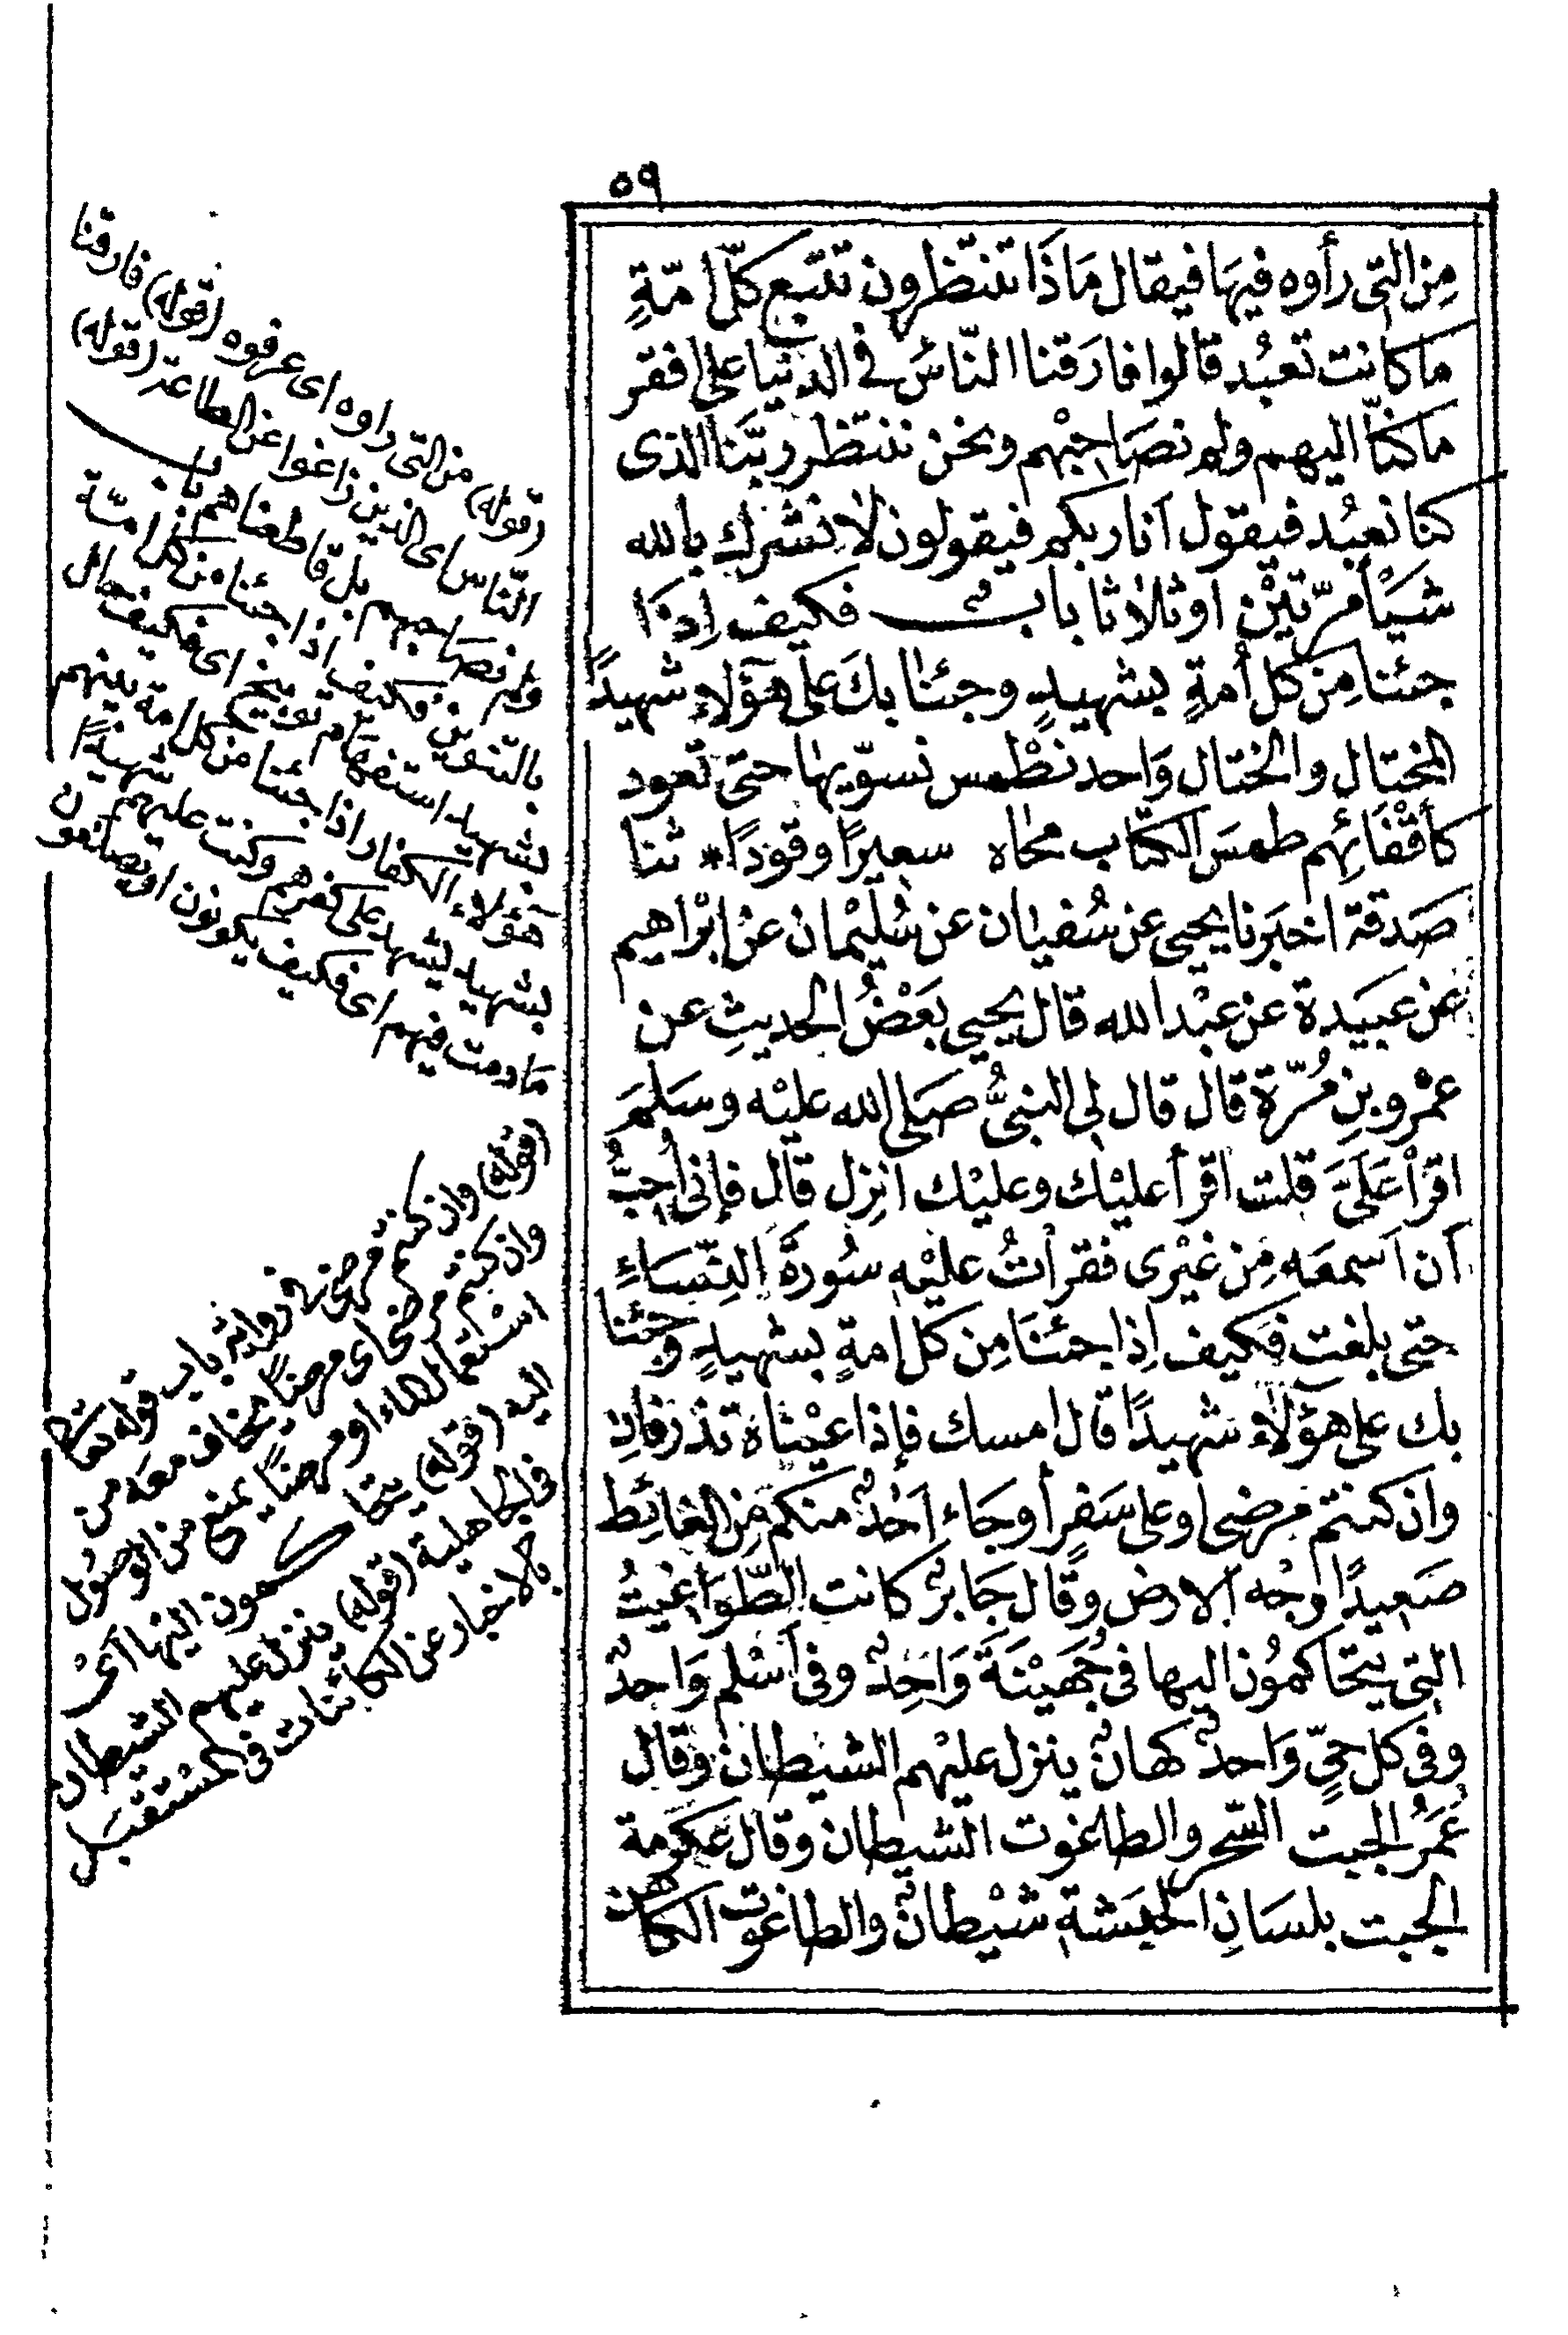 ٥٩
مِن التى رأوه فيهَا فيقال مَاذَا تنتظرون تتبع كلّ امّةٍ
ما كانت تعبُد قالوا فارَقنا النّاسَ فى الدنيا على افقر
ما كنّا اليهم ولم نصَاحبْهم ونحن ننتظر ربّنا الذى
كنا نعبُد فيقول انا ربكم فيقولون لا نشرك بالله
شيَأً مرّتيْن او ثلاثا بابٌ فكيف اِذَا
جئنا مِن كل أمةٍ بشهيدٍ وجئنا بكَ على هؤلاءِ شهيدًا
المختال والختال وَاحد نطْمس نسوّيها حتى تعود
كأقْفَائِهم طمسَ الكتاب محاه سعيرًا وقودًا * ثنا
صَدقة اخبَرنا يحيى عن سُفيان عن سُليْمان عن ابْراهيم
عن عبيَدة عن عبْد الله قال يحيى بَعَضُ الحديثِ عن
عمْرو بنِ مُرّة قال قال لى النبىُّ صَلى الله عليْه وسَلمَ
اقرَأ عَلَىَّ قلت اقرأ عليْك وعليْك انزِل قال فإنى أحِبُّ
أن اَسمعَه مِن غيْرى فقرأتُ عليْه سُورةَ النِّسَاءِ
حتى بلغت فكيف اِذا جئنَا مِن كل امةٍ بشهيدٍ وجئنا
بك على هؤلاءِ شهيدًا قال امسك فإذا عيْناهُ تذرفانِ
وان كنتم مرضى او على سَفرٍ أو جَاء اَحَدٌ منكم مِن الغائِط
صَعيدًا وجْه الارض وقال جَابرٌ كانت الطّوَاغيتُ
التى يتحَاكمُون اليها فى جُهَيْنَةَ وَاحِدٌ وفى اَسْلم وَاحدٌ
وفى كل حىٍّ وَاحدٌ كهانٌ ينزل عليْهم الشيطان وقال
عُمَرُ الجبت السّحر والطاغوت الشيطان وقال عكرمة
الجبت بلسَانِ الحبَشة شيْطانٌ والطاغوت الكاهن
(قوله) من التى راوه اى عرفوه (قوله) فارقنا
النّاس اى الذين زاغوا عن الطاعة (قوله)
ولم نصَاحبهم بل قاطعناهم باب
بالتنوين فكيف اذا جئنا من كل امّة
بشهيد استفهام توبيخ اى فكيف حال
هؤلاء الكفار اذا جئنا من كل امة بنبيهم
بشهيد يشهد على كفرهم وكنت عليهم شهيدًا
مَا دمت فيهم اى فكيف يكونون او يصنعون
(قوله) وان كنتم مرضى فى رواية باب قوله تعالى
وان كنتم مرضى اى مرضًا يخاف معَه من
استعمال الماء او مرضًا يمنع من الوصُول
اليه (قوله) يتحاكمون اليها اىْ
فى الجاهلية (قوله) ينزل عليهم الشيطان
بالاخبار عن الكائنات فى المستقبل